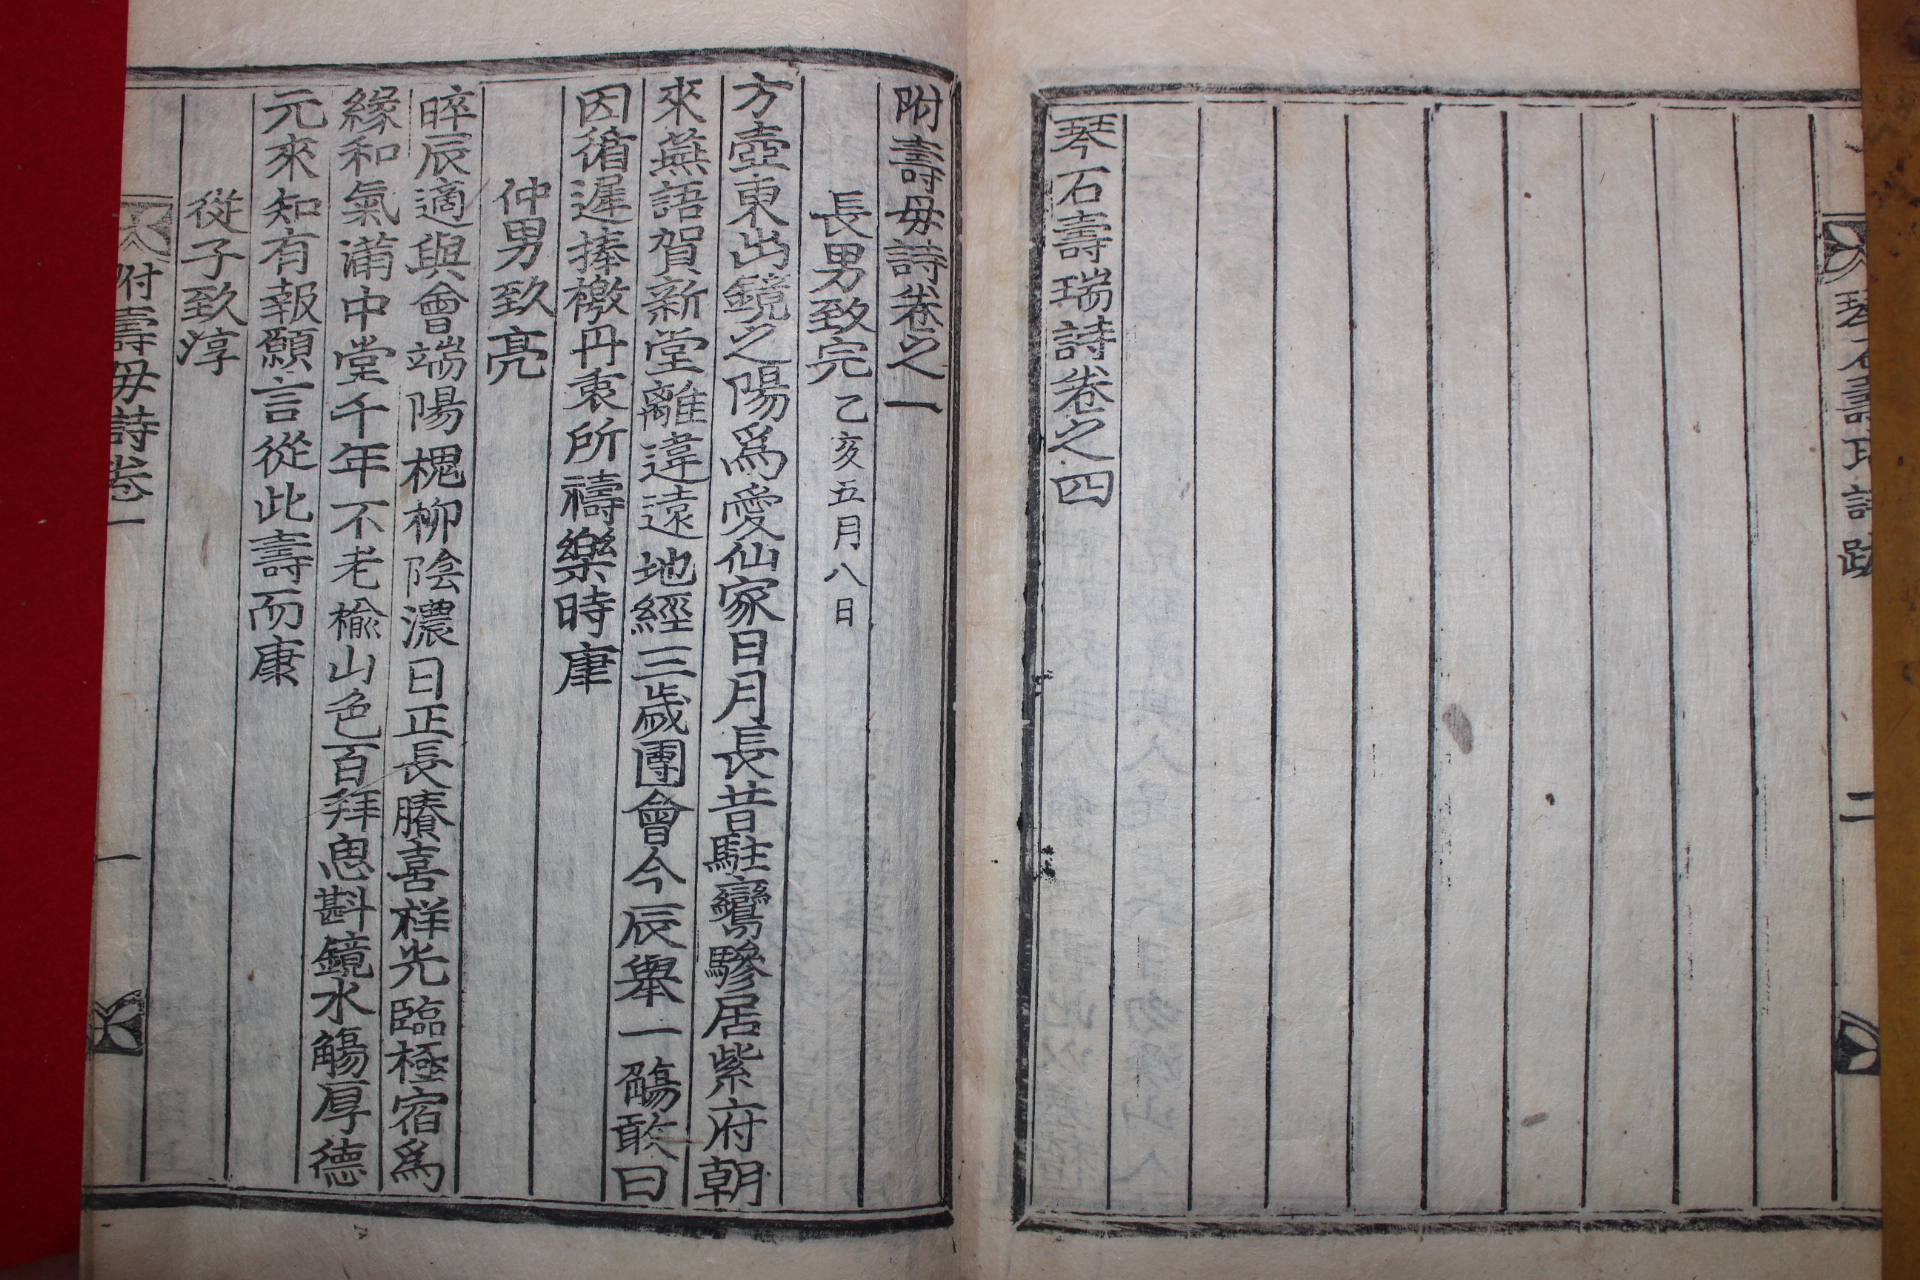 琴石壽瑞詩跋
二
琴石壽瑞詩卷之四
附壽母詩卷之一
長男致完 乙亥五月八日
方壺東出鏡之陽爲愛仙家日月長昔駐鸞驂居紫府朝
來燕語賀新堂離違遠地經三歲團會今辰舉一觴敢曰
因循遲捧檄丹衷所禱樂時康
仲男致亮
晬辰適與會端陽槐柳陰濃日正長賸喜祥光臨極宿爲
緣和氣滿中堂千年不老楡山色百拜恩斟鏡水觴厚德
元來知有報願言從此壽而康
從子致淳
附壽母詩卷一
一